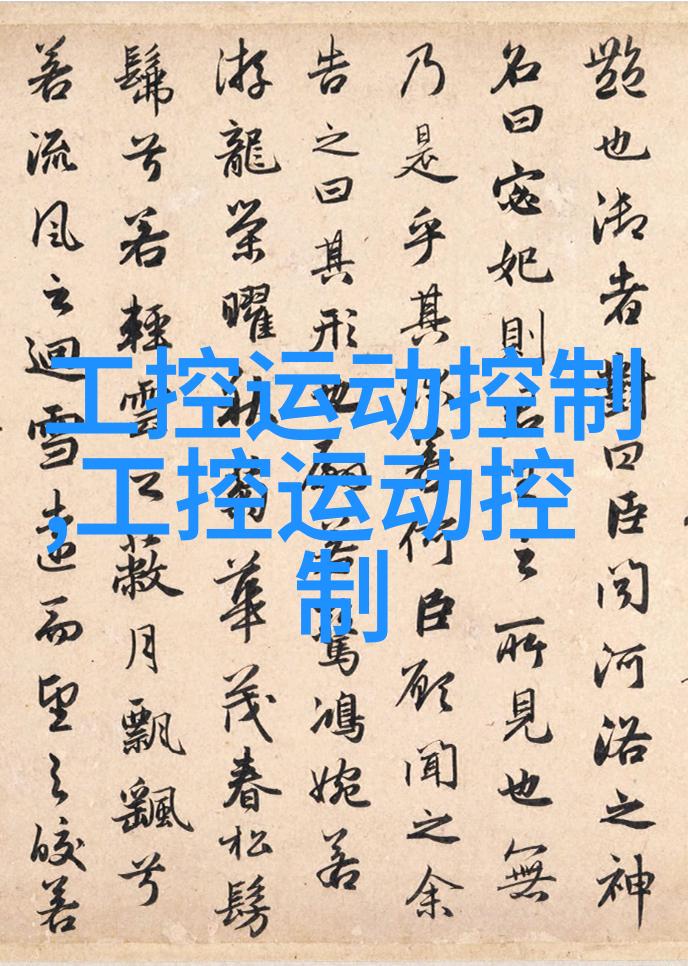 艷也御者對曰臣聞河洛之神
名曰宓妃則君王之所見也無
乃是乎其狀若何臣願聞之余
告之曰其形也翩若驚鴻婉若
游龍榮曜秋菊華茂春松髣
髴兮若輕雲之蔽月飄飖兮
若流風之迴雪遠而望之皎若
工控运动控制
,工控运动控
制